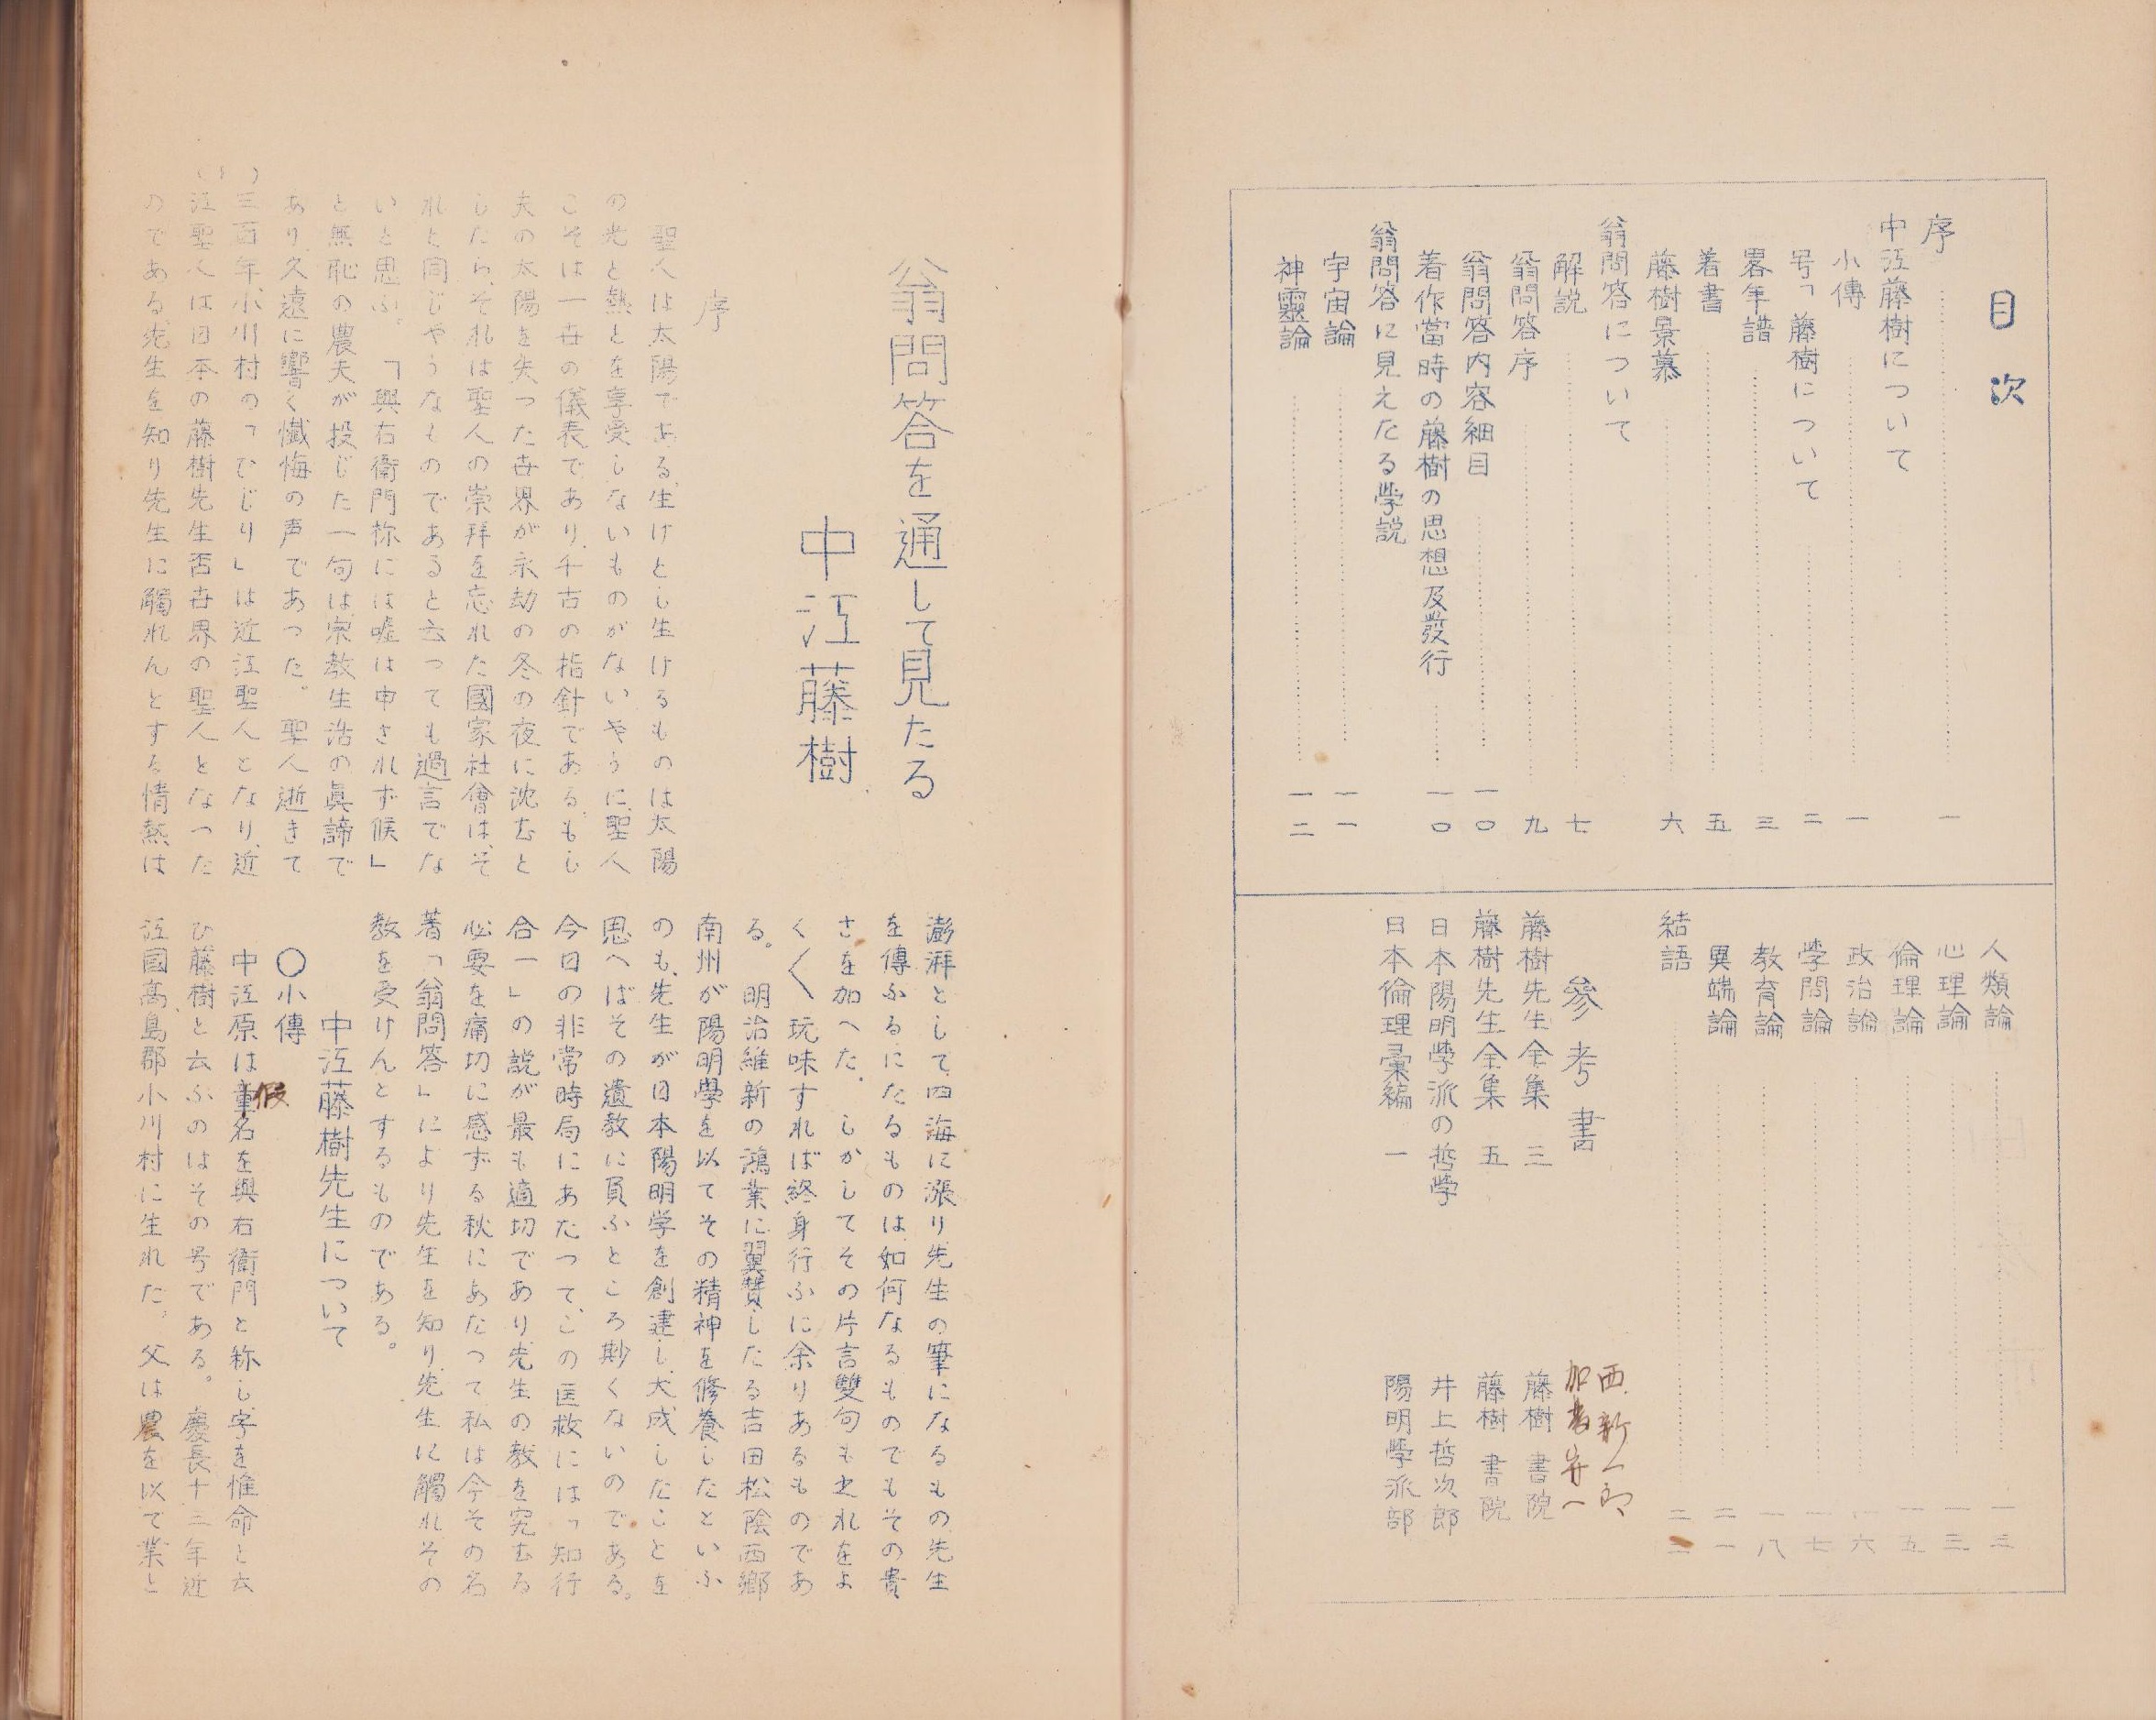 目次
序 一
中江藤樹について
小傳 一
号「藤樹について 二
畧年譜 三
着書 五
藤樹景慕 六
翁問答について
解説 七
翁問答序 九
翁問答内容細目 一〇
着作當時の藤樹の思想及發行 一〇
翁問答に見えたる学説
宇宙論 一一
神靈論 一二
人類論 一三
心理論 一三
倫理論 一五
政治論 一六
學問論 一七
教育論 一八
異端論 二一
結語 二二
參考書
西 新一郎
加藤 弁一
藤樹先生全集 三 藤樹書院
藤樹先生全集 五 藤樹書院
日本陽明學派の哲学 井上哲次郎
日本倫理彙編 一 陽明學派部
翁問答を通して見たる
中江藤樹
序
聖人は太陽である、生けとし生けるものは太陽
の光と熱とを享受しないものがないやうに、聖人
こそは一世の儀表であり、千古の指針である。もし
夫の太陽を失つた世界が永劫の冬の夜に沈むと
したら、それは聖人の崇拜を忘れた國家社會は、そ
れと同じやうなものであると云つても過言でな
いと思ふ。「與右衛門称には嘘は申されず候」
と無恥の農夫が投じた一句は、宗教生活の眞諦で
あり、久遠に響く懺悔の声であつた。聖人逝きて
三百年、小川村の「ひじり」は近江聖人となり、近
江聖人は日本の藤樹先生否世界の聖人となつた
のである。先生を知り先生に觸れんとする情熱は
澎湃として四海に漲り、先生の筆になるもの、先生
を傳ふるにたるものは、如何なるものでもその貴
さを加へた。しかしてその片言雙句も之れをよ
く〱玩味すれば終身行ふに余りあるものであ
る。明治維新の鴻業に翼贊したる吉田松陰西郷
南州が陽明學を以てその精神を修養したといふ
のも、先生が日本陽明学を創建し、大成したことを
思へばその遺教に負ふところ尠くないのである。
今日の非常時局にあたつて、この匡救には「知行
合一」の説が最も適切であり、先生の教を究むる
必要を痛切に感ずる秋にあたつて私は今その名
著「翁問答」により先生を知り、先生に觸れその
教を受けんとするものである。
中江藤樹先生について
〇小傳
中江原は童名を與右衛門と称し、字を惟命と云
假
ひ藤樹と云ふのはその号である。慶長十三年近
江國高島郡小川村に生れた。父は農を以て業と